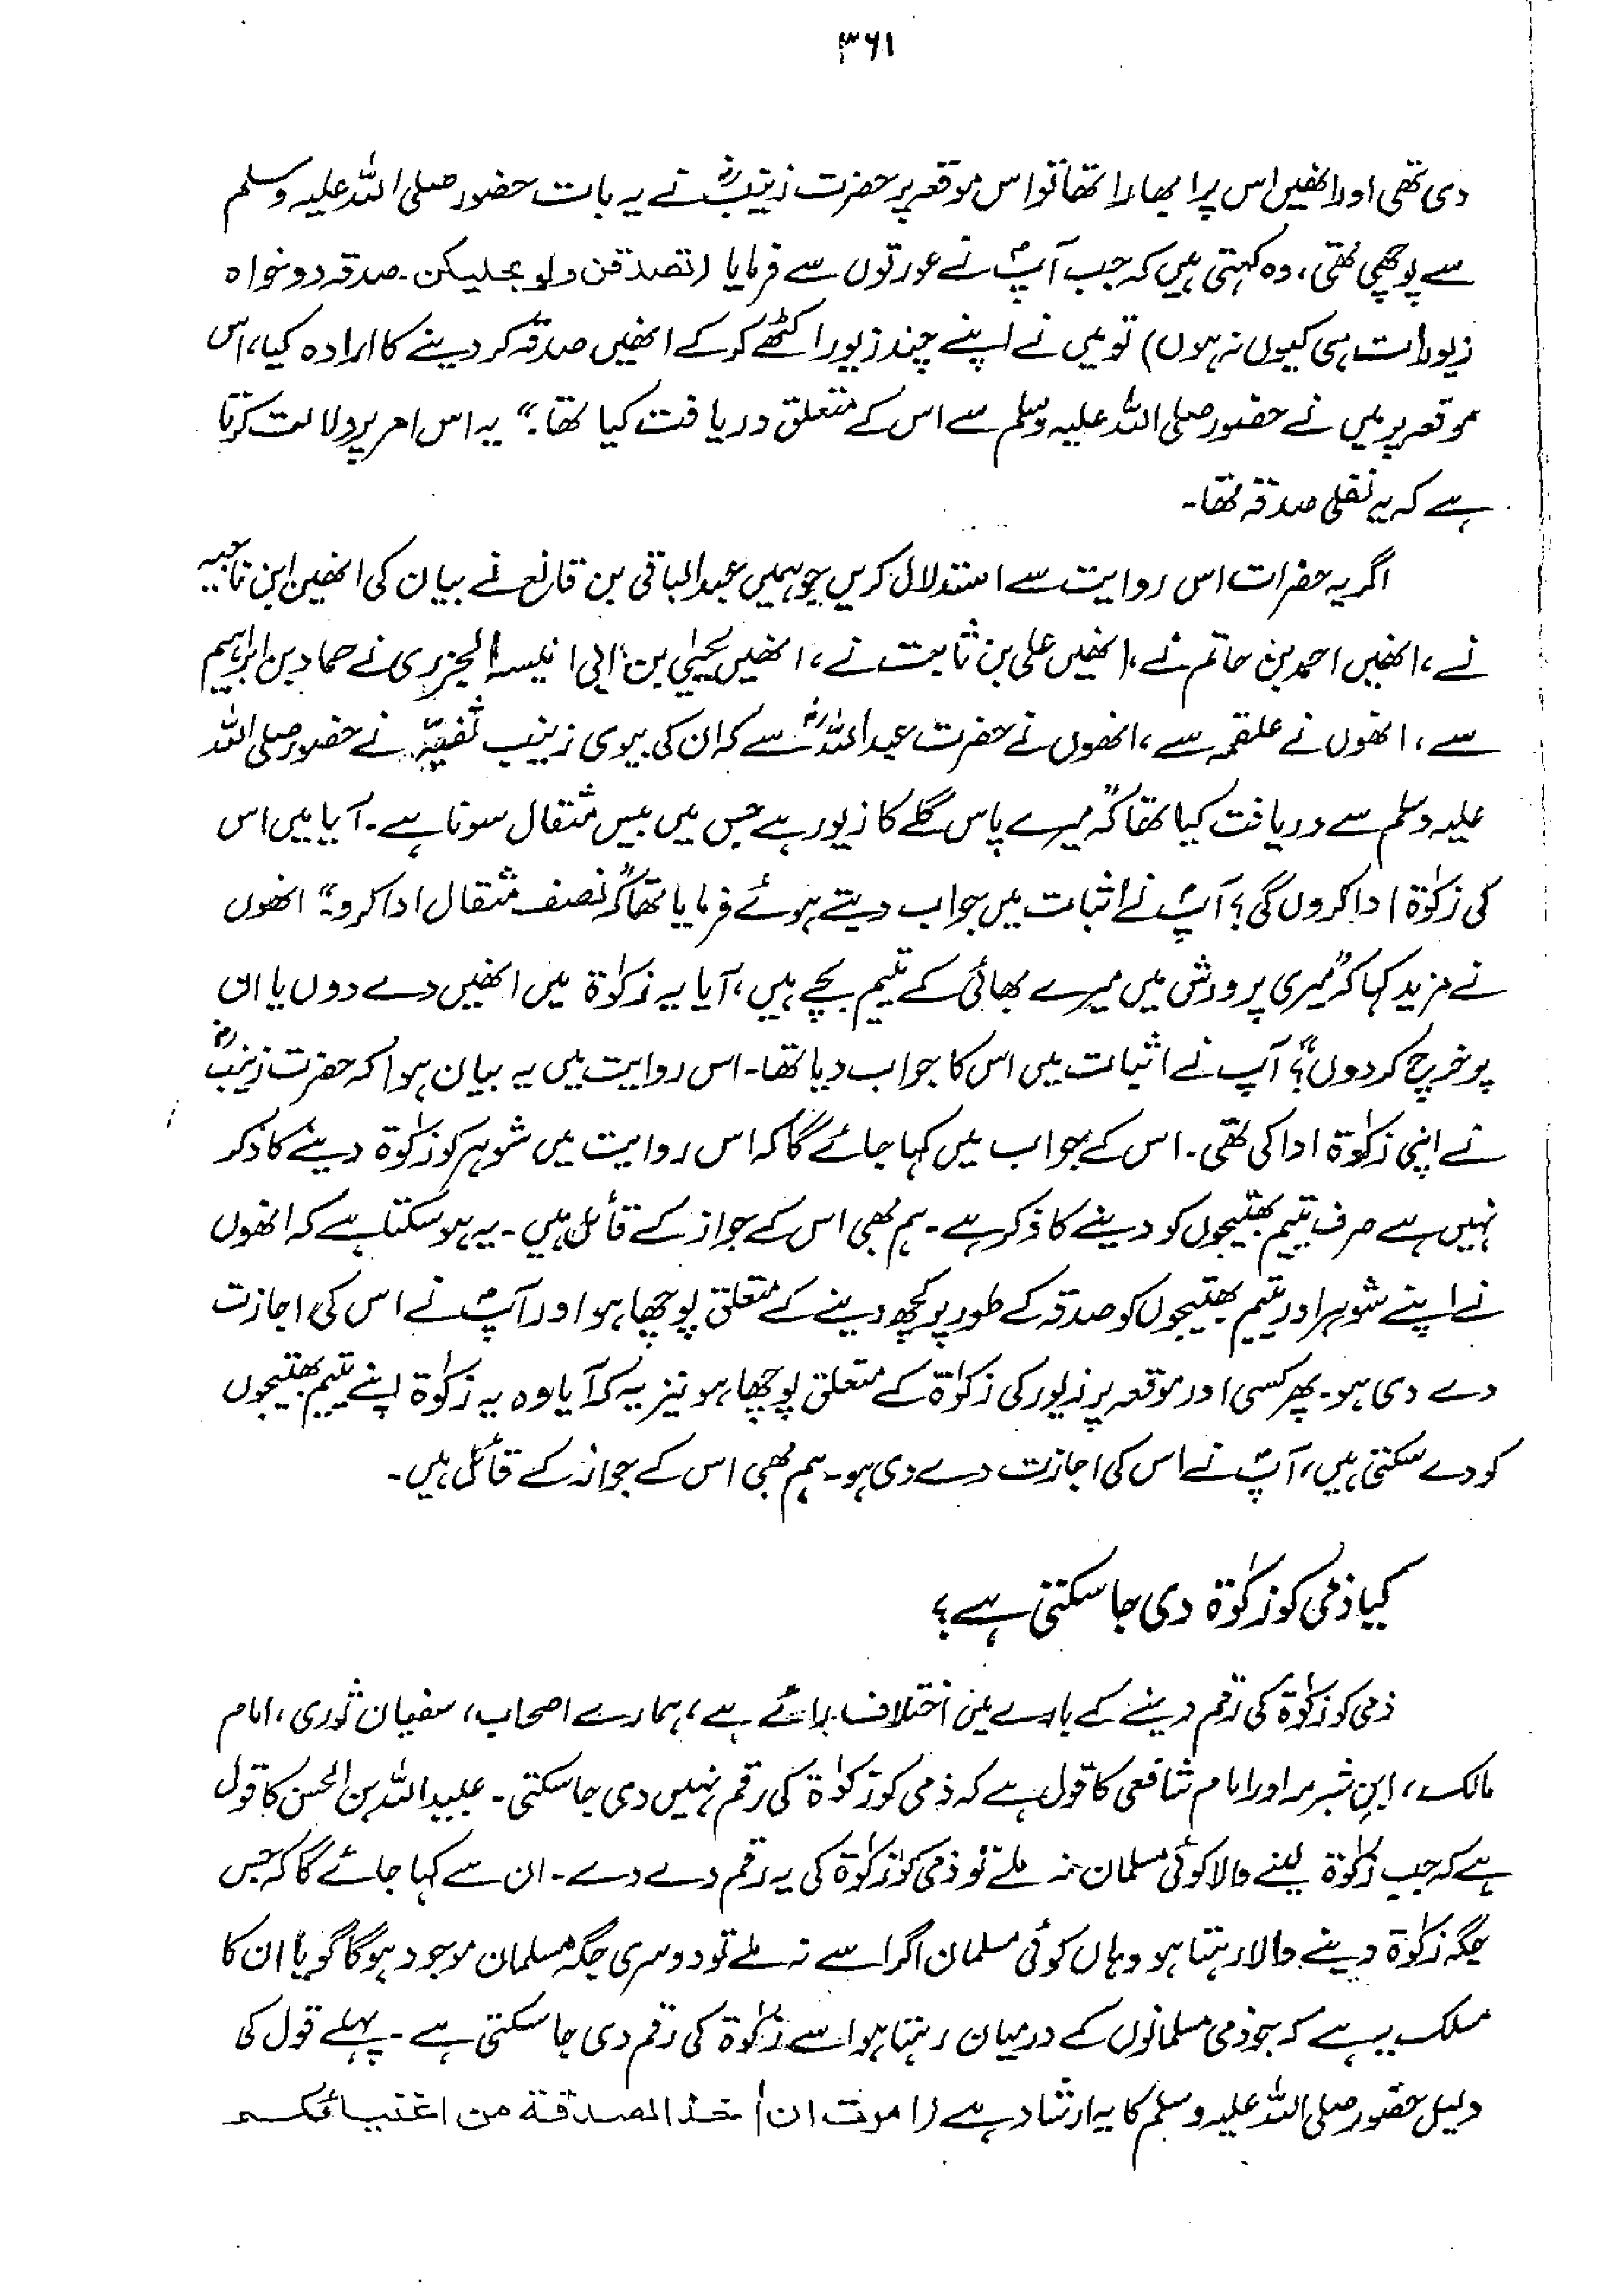 ۳۶۱
دی تھی اور انھیں اس پر ابھارا تھا تو اس موقعہ پر حضرت زینبؓ نے یہ بات حضور صلی اللہ علیہ وسلم
سے پوچھی تھی، وہ کہتی ہیں کہ جب آپؐ نے عورتوں سے فرمایا (تصدقن ولو بحلیکن۔ صدقہ دو خواہ
زیورات ہی کیوں نہ ہوں) تو میں نے اپنے چند زیور اکٹھے کر کے انھیں صدقہ کر دینے کا ارادہ کیا، اس
موقعہ پر میں نے حضور صلی اللہ علیہ وسلم سے اس کے متعلق دریافت کیا تھا۔" یہ اس امر پر دلالت کرتا
ہے کہ یہ نفلی صدقہ تھا۔
اگر یہ حضرات اس روایت سے استدلال کریں جو ہمیں عبدالباقی بن قانع نے بیان کی انھیں ابن ناجیہ
نے، انھیں احمد بن حاتم نے، انھیں علی بن ثابت نے، انھیں یحییٰ بن ابی انیسہ الجزری نے حماد بن ابراہیم
سے، انھوں نے علقمہ سے، انھوں نے حضرت عبداللہؓ سے کہ ان کی بیوی زینب ثقفیہؓ نے حضور صلی اللہ
علیہ وسلم سے دریافت کیا تھا کہ "میرے پاس گلے کا زیور ہے جس میں بیس مثقال سونا ہے۔ آیا میں اس
کی زکوٰۃ ادا کروں گی؟ آپؐ نے اثبات میں جواب دیتے ہوئے فرمایا تھا کہ "نصف مثقال ادا کرو۔" انھوں
نے مزید کہا کہ "میری پرورش میں میرے بھائی کے یتیم بچے ہیں، آیا یہ زکوٰۃ میں انھیں دے دوں یا ان
پر خرچ کر دوں؟" آپ نے اثبات میں اس کا جواب دیا تھا۔ اس روایت میں یہ بیان ہوا کہ حضرت زینبؓ
نے اپنی زکوٰۃ ادا کی تھی۔ اس کے جواب میں کہا جائے گا کہ اس روایت میں شوہر کو زکوٰۃ دینے کا ذکر
نہیں ہے صرف یتیم بھتیجوں کو دینے کا ذکر ہے۔ ہم بھی اس کے جواز کے قائل ہیں۔ یہ ہو سکتا ہے کہ انھوں
نے اپنے شوہر اور یتیم بھتیجوں کو صدقہ کے طور پر کچھ دینے کے متعلق پوچھا ہو اور آپؐ نے اس کی اجازت
دے دی ہو۔ پھر کسی اور موقعہ پر زیور کی زکوٰۃ کے متعلق پوچھا ہو نیز یہ کہ آیا وہ یہ زکوٰۃ اپنے یتیم بھتیجوں
کو دے سکتی ہیں، آپؐ نے اس کی اجازت دے دی ہو۔ ہم بھی اس کے جواز کے قائل ہیں۔
کیا ذمی کو زکوٰۃ دی جا سکتی ہے؟
ذمی کو زکوٰۃ کی رقم دینے کے بارے میں اختلاف رائے ہے، ہمارے اصحاب، سفیان ثوری، امام
مالک، ابن شبرمہ اور امام شافعی کا قول ہے کہ ذمی کو زکوٰۃ کی رقم نہیں دی جا سکتی۔ عبیداللہ بن الحسن کا قول
ہے کہ جب زکوٰۃ لینے والا کوئی مسلمان نہ ملے تو ذمی کو زکوٰۃ کی یہ رقم دے دے۔ ان سے کہا جائے گا کہ جس
جگہ زکوٰۃ دینے والا رہتا ہو وہاں کوئی مسلمان اگر اسے نہ ملے تو دوسری جگہ مسلمان موجود ہوگا گویا ان کا
مسلک یہ ہے کہ جو ذمی مسلمانوں کے درمیان رہتا ہو اسے زکوٰۃ کی رقم دی جا سکتی ہے۔ پہلے قول کی
دلیل حضور صلی اللہ علیہ وسلم کا یہ ارشاد ہے (امرت ان اخذ الصدقة من اغنیائکم